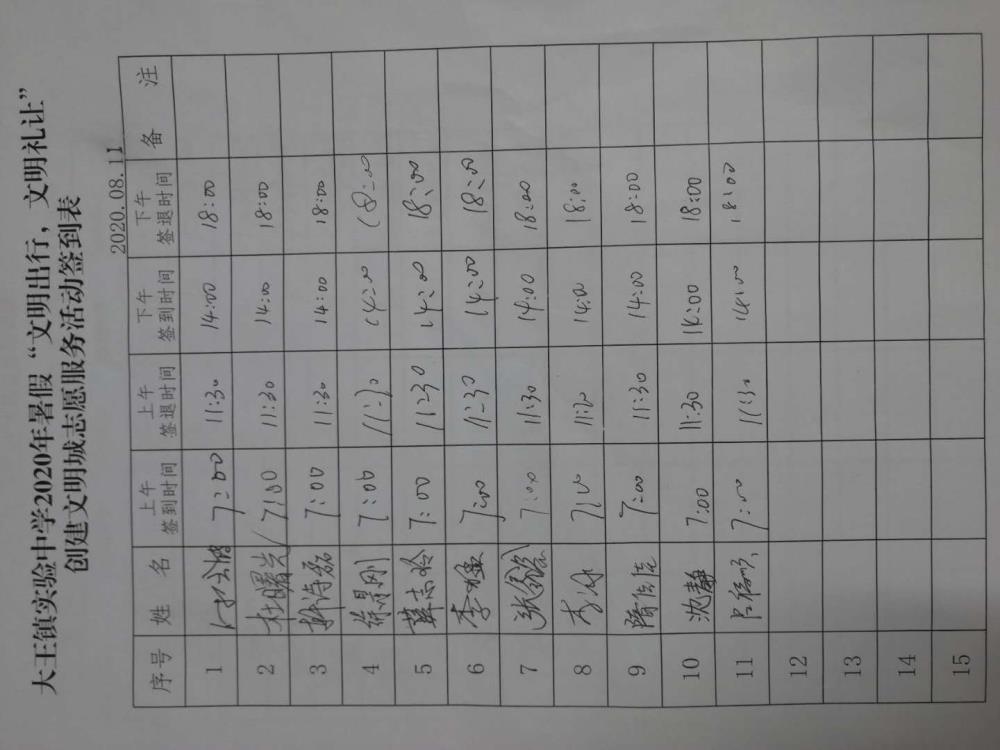 大王镇实验中学2020年暑假“文明出行，文明礼让”
创建文明城志愿服务活动签到表
2020.08.11
序号 姓 名 上午签到时间 上午签退时间 下午签到时间 下午签退时间 备 注
1 7:00 11:30 14:00 18:00
2 杜曙光 7:00 11:30 14:00 18:00
3 7:00 11:30 14:00 18:00
4 徐景刚 7:00 11:30 14:00 18:00
5 薛志玲 7:00 11:30 14:00 18:00
6 7:00 11:30 14:00 18:00
7 7:00 11:30 14:00 18:00
8 7:00 11:30 14:00 18:00
9 7:00 11:30 14:00 18:00
10 沈静 7:00 11:30 14:00 18:00
11 7:00 11:30 14:00 18:00
12
13
14
15